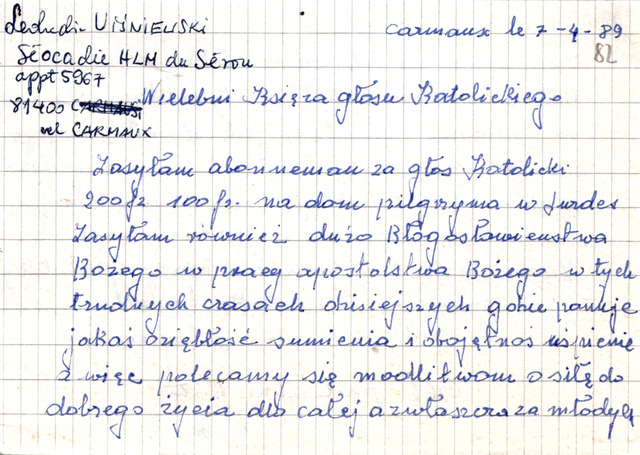 Leokadia WIŚNIEWSKI
Léocadie HLM du Sérou
appt 5967
81400
vel CARMAUX
Carmaux le 7-4-89
82
Wielebni Księża głosu Katolickiego
Zasyłam abonneman za głos Katolicki
200 fr. 100 fr. na dom pielgrzyma w Lurdes
Zasyłam również dużo Błogosławienstwa
Bożego w pracy apostolstwa Bożego w tych
trudnych czasach dzisiejszych gdzie panuje
jakaś oziębłość sumienia i obojętnoś
a więc polecamy się modlitwom o siłę do
dobrego życia dla całej a zwłaszcza za młodych